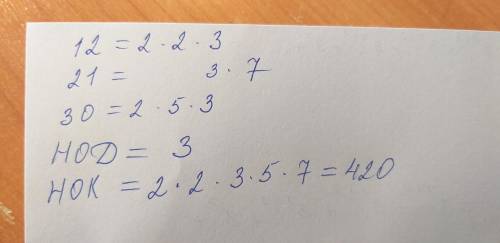 12 = 2 · 2 · 3
21 = 3 · 7
30 = 2 · 5 · 3
НОД = 3
НОК = 2 · 2 · 3 · 5 · 7 = 420